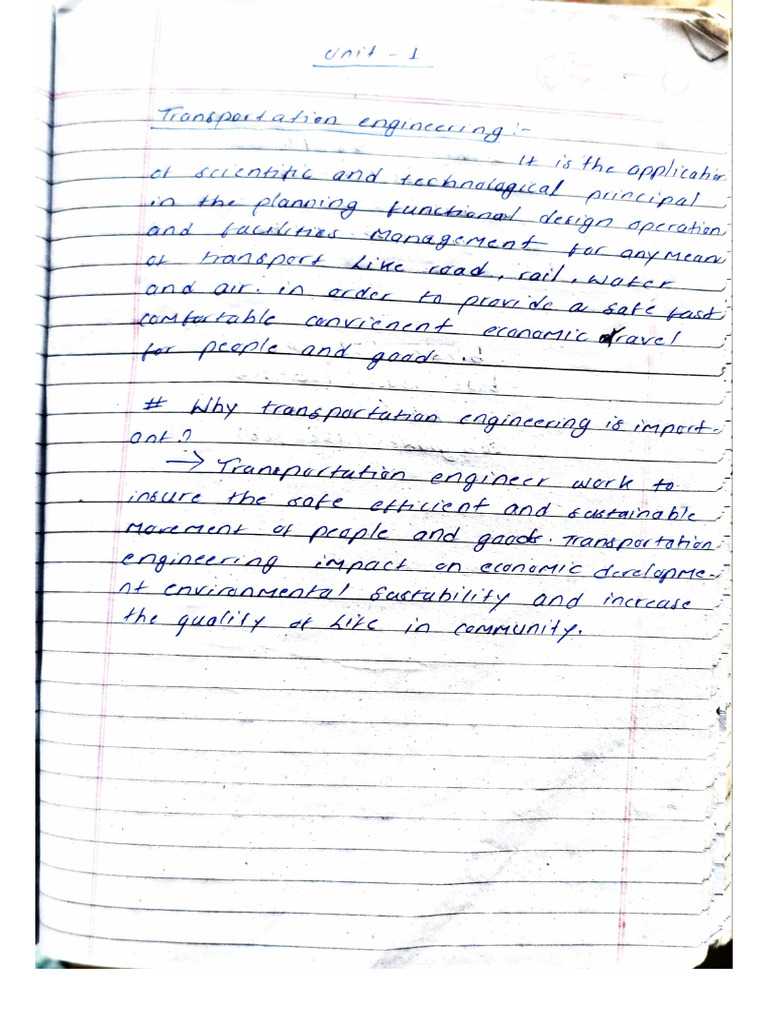 Unit - 1
Transportation engineering :-
It is the application
of scientific and technological principal
in the planning functional design operation
and facilities management for any mean
of transport like road, rail, water
and air. in order to provide a safe fast
comfortable convrienent economic travel
for people and goods.
# Why transportation engineering is import-
ant?
→ Transportation engineer work to
insure the safe efficient and sustainable
movement of people and goods. Transportation
engineering impact on economic developme-
nt environmental sustability and increase
the quality of life in community.